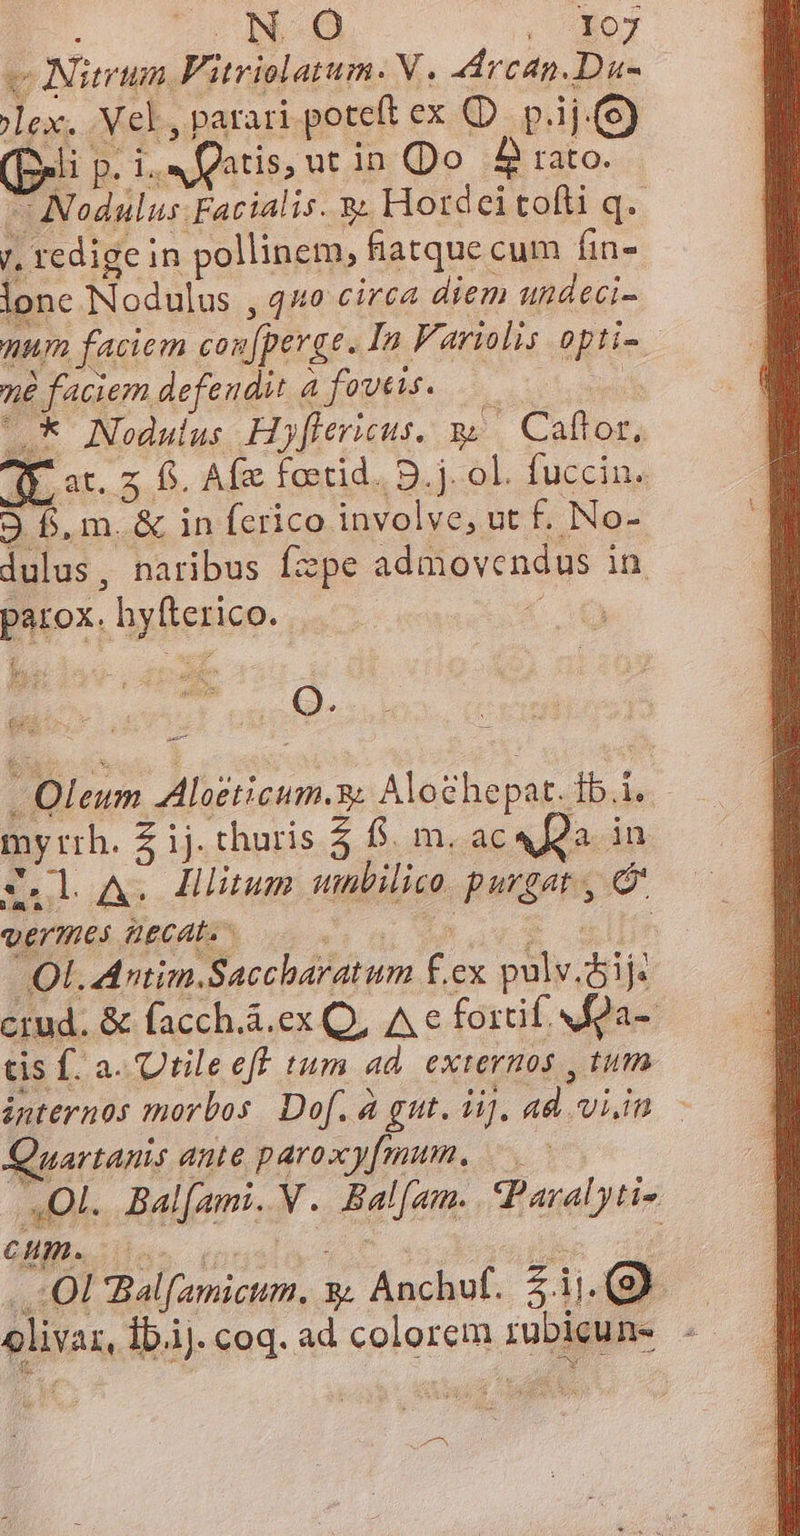 N O 107
Nitrum Vitriolatum. V. Arcan.Du-
lex. Vel, parari poteſt ex ⦶ p.ij.
li p. i. atis, ut in ⦶o rato.
Nodulus Facialis. ℞ Hordei toſti q.
v. redige in pollinem, fiatque cum ſin-
done Nodulus, quo circa diem undeci-
mum faciem conſperge. In Variolis opti-
mè faciem defendit à foveis.
* Nodulus Hyſtericus. ℞ Caſtor,
at. ʒ ß. Aſæ fœtid. ℈.j. ol. ſuccin.
℈ ß, m. & in ſerico involve, ut f. No-
dulus, naribus ſæpe admovendus in
parox. hyſterico.
O.
Oleum Aloëticum. ℞ Aloëhepat. ℔.i.
myrrh. ℥ ij. thuris ℥ ß. m. ac a in
l. Illitum umbilico purgat, &
vermes necat.
Ol. Antim. Saccharatum f.ex pulv. ♁ij.
crud. & ſacch.ā.ex e fortiſ. a-
tis ſ. a. Utile eſt tum ad externos, tum
internos morbos Doſ. à gut. iij. ad vi.in
Quartanis ante paroxyſmum.
Ol. Balſami. V. Balſam. Paralyti-
cum.
Ol Balſamicum. ℞ Anchuſ. ℥.ij.
olivar, ℔.ij. coq. ad colorem rubicun-